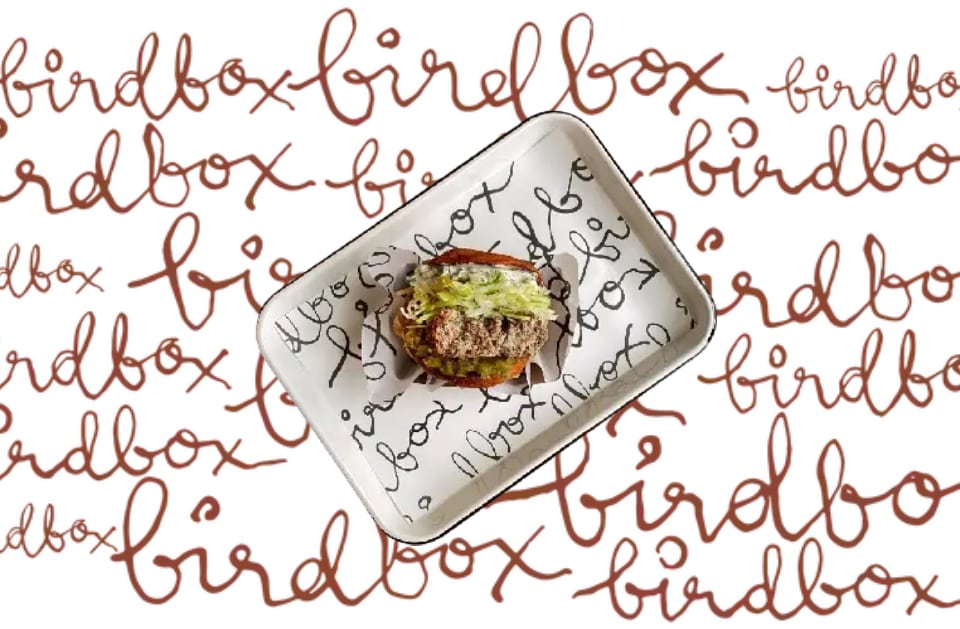 birdbox birdbox birdbo
rdbox bi birdbo
dbox bird box birdbo
irdbox box birdbo
irdbox box birdbo
dbox birdbox birdbox